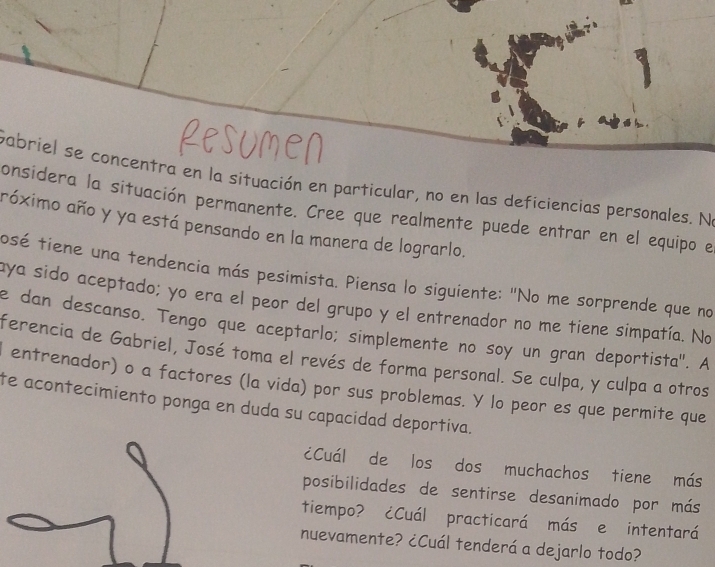 Resumen
Gabriel se concentra en la situación en particular, no en las deficiencias personales. No
onsidera la situación permanente. Cree que realmente puede entrar en el equipo e
róximo año y ya está pensando en la manera de lograrlo.
osé tiene una tendencia más pesimista. Piensa lo siguiente: "No me sorprende que no
aya sido aceptado; yo era el peor del grupo y el entrenador no me tiene simpatía. No
e dan descanso. Tengo que aceptarlo; simplemente no soy un gran deportista". A
ferencia de Gabriel, José toma el revés de forma personal. Se culpa, y culpa a otros
l entrenador) o a factores (la vida) por sus problemas. Y lo peor es que permite que
te acontecimiento ponga en duda su capacidad deportiva.
¿Cuál de los dos muchachos tiene más
posibilidades de sentirse desanimado por más
tiempo? ¿Cuál practicará más e intentará
nuevamente? ¿Cuál tenderá a dejarlo todo?